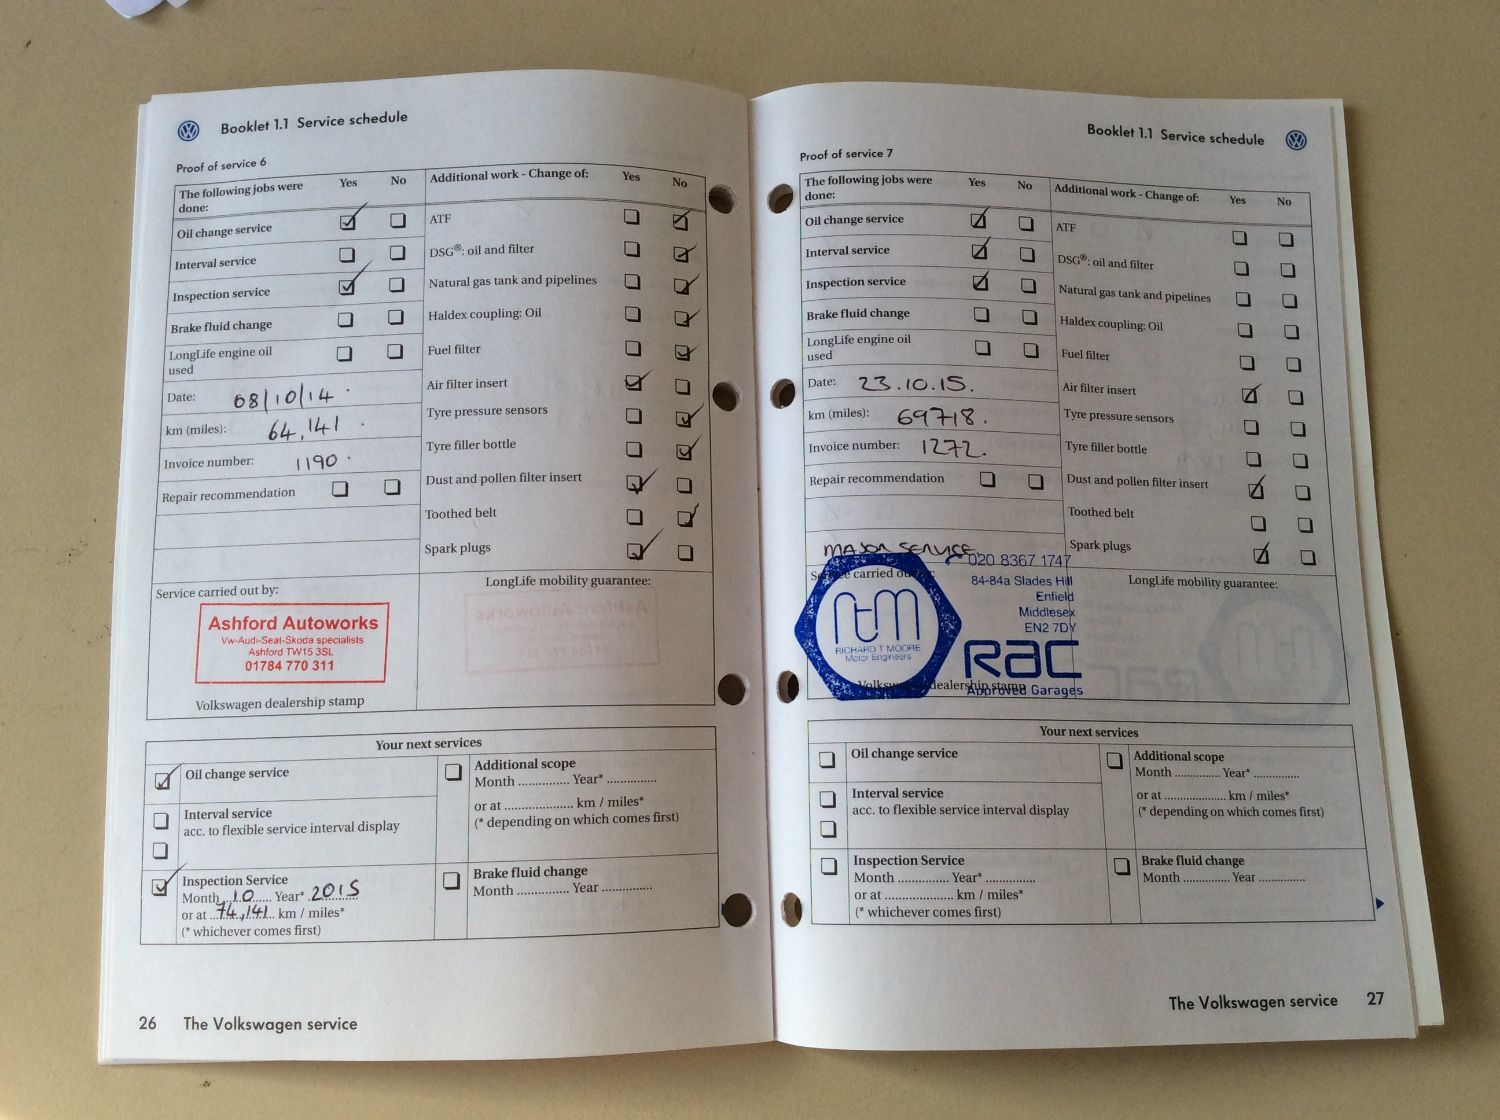 Booklet 1.1 Service schedule
Proof of service 6
The following jobs were done: Yes No
Oil change service
Interval service
Inspection service
Brake fluid change
LongLife engine oil used
Date: 08/10/14
km (miles): 64,141
Invoice number: 1190
Repair recommendation
Additional work - Change of: Yes No
ATF
DSG®: oil and filter
Natural gas tank and pipelines
Haldex coupling: Oil
Fuel filter
Air filter insert
Tyre pressure sensors
Tyre filler bottle
Dust and pollen filter insert
Toothed belt
Spark plugs
Service carried out by:
Ashford Autoworks
Vw-Audi-Seat-Skoda specialists
Ashford TW15 3SL
01784 770 311
Volkswagen dealership stamp
LongLife mobility guarantee:
Your next services
Oil change service
Interval service
acc. to flexible service interval display
Inspection Service
Month 10 Year* 2015
or at 74,141 km / miles*
(* whichever comes first)
Additional scope
Month .............. Year* ..............
or at .................... km / miles*
(* depending on which comes first)
Brake fluid change
Month .............. Year ..............
26 The Volkswagen service
Booklet 1.1 Service schedule
Proof of service 7
The following jobs were done: Yes No
Oil change service
Interval service
Inspection service
Brake fluid change
LongLife engine oil used
Date: 23.10.15.
km (miles): 69718.
Invoice number: 1272.
Repair recommendation
MAJOR SERVICE
Additional work - Change of: Yes No
ATF
DSG®: oil and filter
Natural gas tank and pipelines
Haldex coupling: Oil
Fuel filter
Air filter insert
Tyre pressure sensors
Tyre filler bottle
Dust and pollen filter insert
Toothed belt
Spark plugs
Service carried out by:
rtm
RICHARD T MOORE
Motor Engineers
020 8367 1747
84-84a Slades Hill
Enfield
Middlesex
EN2 7DY
RAC
Approved Garages
Volkswagen dealership stamp
LongLife mobility guarantee:
Your next services
Oil change service
Interval service
acc. to flexible service interval display
Inspection Service
Month .............. Year* ..............
or at .................... km / miles*
(* whichever comes first)
Additional scope
Month .............. Year* ..............
or at .................... km / miles*
(* depending on which comes first)
Brake fluid change
Month .............. Year ..............
The Volkswagen service 27